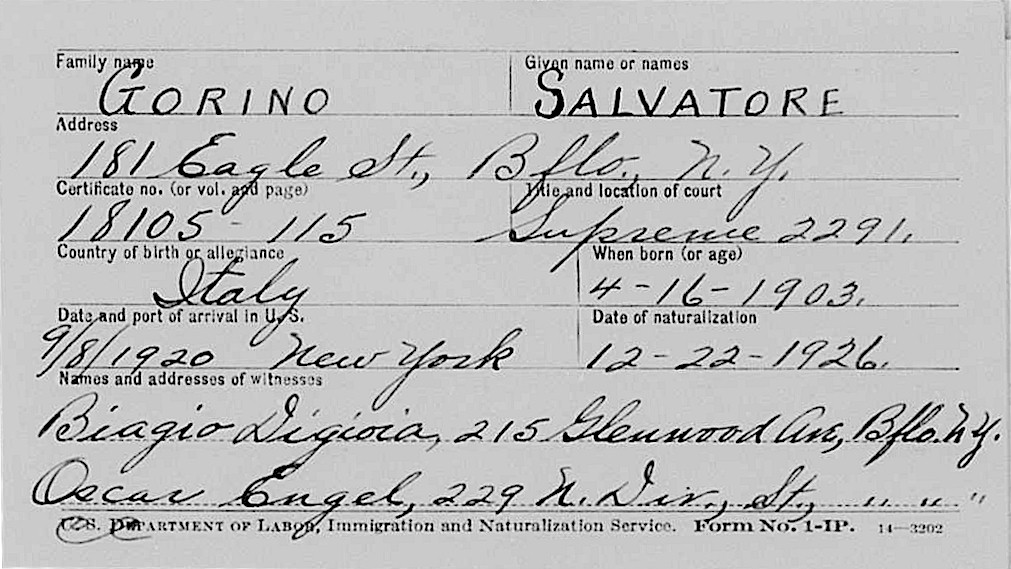 Family name Given name or names
GORINO SALVATORE
Address
181 Eagle St., Bflo., N.Y.
Certificate no. (or vol. and page) Title and location of court
18105 - 115 Supreme 2291.
Country of birth or allegiance When born (or age)
Italy 4-16-1903.
Date and port of arrival in U.S. Date of naturalization
9/8/1920 New York 12-22-1926.
Names and addresses of witnesses
Biagio Digioia, 215 Glenwood Av., Bflo. N.Y.
Oscar Engel, 229 N. Div., St., " " "
U.S. DEPARTMENT OF LABOR, Immigration and Naturalization Service. Form No. 1-IP. 14—3202